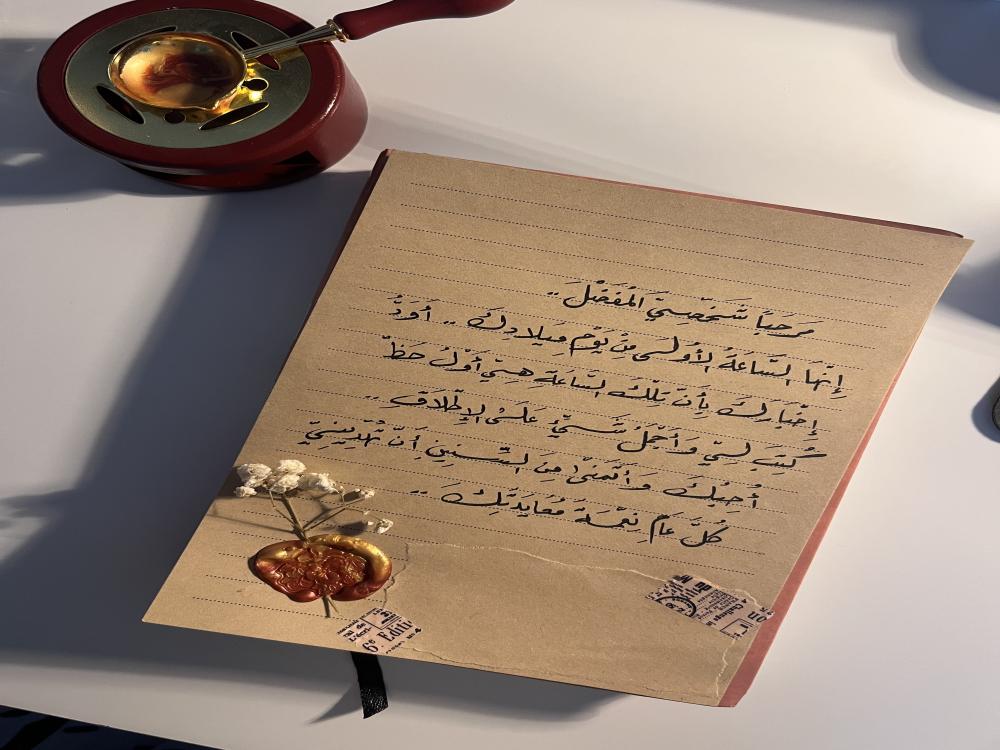 مَرحَبَاً شَخصِيَ المُفَضَّلَ ..
إنَّهَا السَّاعَةُ الأُولَى مِنْ يَوْمِ مِيلادِكَ .. أَوَدُّ
إِخْبَارَكَ بِأَنَّ تِلْكَ السَّاعَةَ هِيَ أَوَّلُ حَظّ
كُتِبَ لِيَ وَأَجْمَلُ شَيْءٍ عَلَى الإِطْلَاقِ ..
أُحِبُّكَ وَأَتَمَنَّى مِنَ السِّنِينِ أَنْ تُهْدِينِيَ
كُلَّ عَامٍ نِعْمَةَ مُعَايَدَتِكَ ..
6e Édit